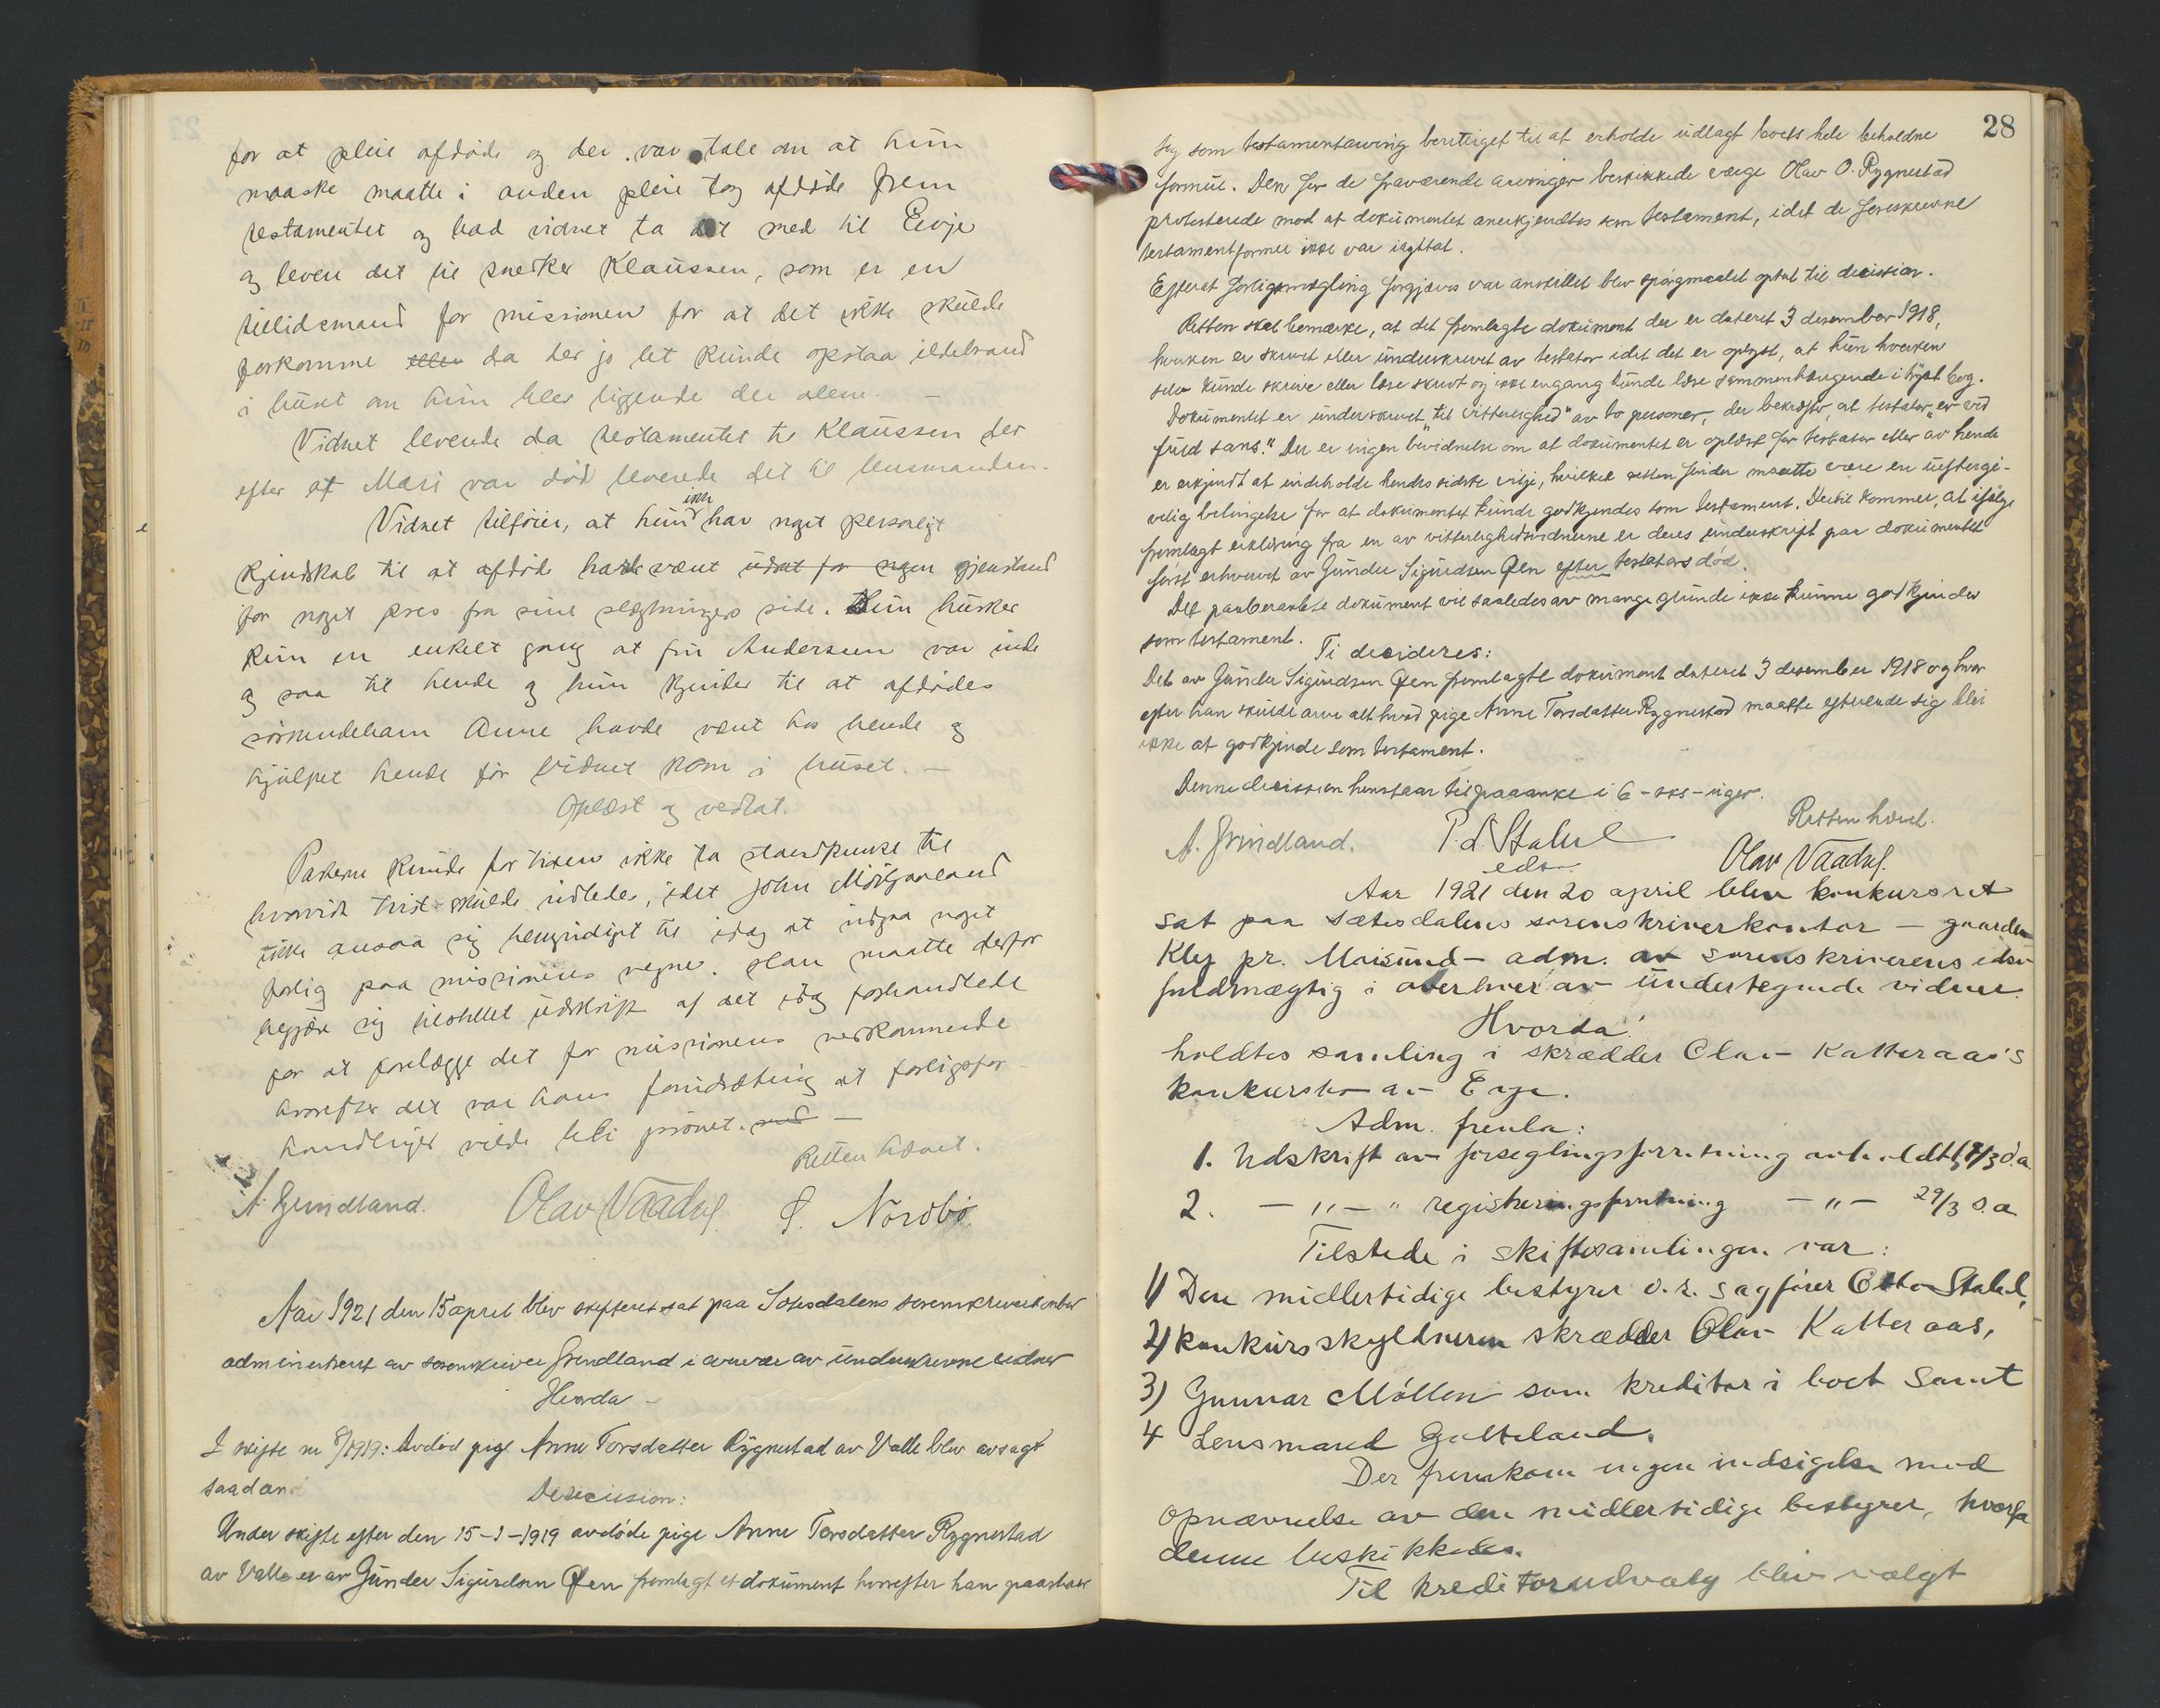 for at pleie afdøde og der var tale om at hun
maaske maatte i anden pleie tog afdøde frem
testamentet og bad vidnet ta det med til Evje
og levere det til snedker Klaussen, som er en
tillidsmand for missionen for at det ikke skulde
forkomme eller da der jo let kunde opstaa ildebrand
i huset om hun blev liggende der alene. —
Vidnet leverede da testamentet til Klaussen der
efter at Mari var død leverede det til lensmanden.
Vidnet tilføier, at hun ikke har noget personligt
kjendskab til at afdøde havde været udsat for nogen gjenstand
for noget pres fra sine slægtninges side. Hun husker
kun en enkelt gang at fru Andersen var inde
og saa til hende og hun kjender til at afdødes
søskendebarn Anne havde været hos hende og
hjulpet hende før vidnet kom i huset. —
Oplæst og vedtat.
Parterne kunde for tiden ikke ta standpunkt til
hvorvidt tvist skulde udledes, idet John
ikke ansaa sig bemyndiget til idag at indgaa noget
forlig paa missionens vegne. Han maatte derfor
begjære sig tilstillet udskrift af det idag forhandlede
for at forelægge det for missionens vedkommende
hvorefter det var hans forudsætning at forligsfor-
handlinger vilde bli prøvet. —
Retten hævet.
A. Grindland. Olav Vaadnes S. Nordbø
Aar 1921 den 15 april blev skifteret sat paa Sætesdalens sorenskriverkontor
administrert av sorenskriver Grindland i overvær av underskrevne vidner
Hvorda —
I skifte nr 8/1919: Avdød pige Anne Torsdatter Rygnestad av Valle blev avsagt
saadan
Decission:
Under skifte efter den 15-1-1919 avdøde pige Anne Torsdatter Rygnestad
av Valle er av Gunder Sigurdsen Øen fremlagt et dokument hvorefter han paastaar
28
sig som testamentarving berettiget til at erholde udlagt boets hele beholdne
formue. Den for de fraværende arvinger beskikkede værge Olav O. Rygnestad
protesterede mod at dokumentet anerkjendtes som testament, idet de foreskrevne
testamentformer ikke var iagttat.
Efterat forligsmægling forgjæves var anstillet blev spørgsmaalet optat til decission.
Retten skal bemærke, at det fremlagte dokument der er dateret 3 desember 1918,
hverken er skrevet eller underskrevet av testator idet det er oplyst, at hun hverken
selv kunde skrive eller læse skrevt og ikke engang kunde læse sammenhængende i trykt bog.
Dokumentet er underskrevet "til vitterlighed" av to personer, der bekræfter, at testator "er ved
fuld sans." Der er ingen bevidnelse om at dokumentet er oplæst for testator eller av hende
er erkjendt at indeholde hendes sidste vilje, hvilket retten finder maatte være en uefter­gi-
velig betingelse for at dokumentet kunde godkjendes som testament. Dertil kommer, at ifølge
fremlagt erklæring fra en av vitterlighedsvidnerne er deres underskrift paa dokumentet
først erhvervet av Gunder Sigurdsen Øen efter testators død.
Det paaberaabte dokument vil saaledes av mange grunde ikke kunne godkjendes
som testament.
Ti decideres:
Det av Gunder Sigurdsen Øen fremlagte dokument dateret 3 desember 1918 og hvor
efter han skulde arve alt hvad pige Anne Torsdatter Rygnestad maatte efterlade sig blir
ikke at godkjende som testament.
Denne decission henstaar til paaanke i 6 - seks - uger.
Retten hævet.
A. Grindland. P. d. Stabel Olav Vaadnes
edsv.
Aar 1921 den 20 april blev konkursret
sat paa Sætesdalens sorenskriverkontor — gaarden
Kley pr. Moisund — adm. av sorenskriverens edsv.
fuldmægtig i overvær av undertegnede vidner.
Hvorda!
holdtes samling i skrædder Olav Katteraas's
konkursbo av Evje.
Adm. fremla:
1. Udskrift av forseglingsforretning avholdt /3 d.a.
2. — „ — „ registreringsforretning — „ — 29/3 d.a
Tilstede i skiftesamlingen var:
1) Den midlertidige bestyrer o.r. sagfører Otto Stabel,
2) konkursskyldneren skrædder Olav Katteraas,
3) Gunnar Møllen som kreditor i boet samt
4 Lensmand Galteland.
Der fremkom ingen indsigelse mod
opnævnelse av den midlertidige bestyrer, hvorfor
denne beskikkedes.
Til kreditorudvalg blev valgt